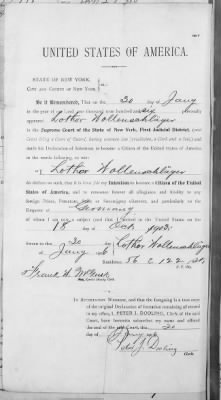 UNITED STATES OF AMERICA.
STATE OF NEW YORK,
CITY AND COUNTY OF NEW YORK,
Be it Remembered, That on the 30 day of Jany
in the year of our Lord one thousand nine hundred and six personally
appeared Lothar Wollenschläger
in the Supreme Court of the State of New York, First Judicial District, (said
Court being a Court of Record, having common law jurisdiction, a Clerk and a Seal,) and
made his Declaration of Intention to become a Citizen of the United States of America
in the words following, to wit:
I, Lothar Wollenschläger
do declare on oath, that it is bona fide my Intention to become a Citizen of the United
States of America, and to renounce forever all allegiance and fidelity to any
foreign Prince, Potentate, State or Sovereignty whatever, and particularly to the
Emperor of Germany
of whom I am now a subject and that I arrived in the United States on the
18 day of Oct. 1903.
Sworn to this 30
day of Jany 06 Lothar Wollenschläger
Residence, 56 E 122 St.
N. Y. City.
Clerk.
IN ATTESTATION WHEREOF, and that the foregoing is a true copy
of the original Declaration of Intention remaining of record
in my office, I, PETER J. DOOLING, Clerk of the said
Court, have hereunto subscribed my name and affixed
the seal of the said Court, this 30
day of Jany 06
Peter J. Dooling
Clerk.